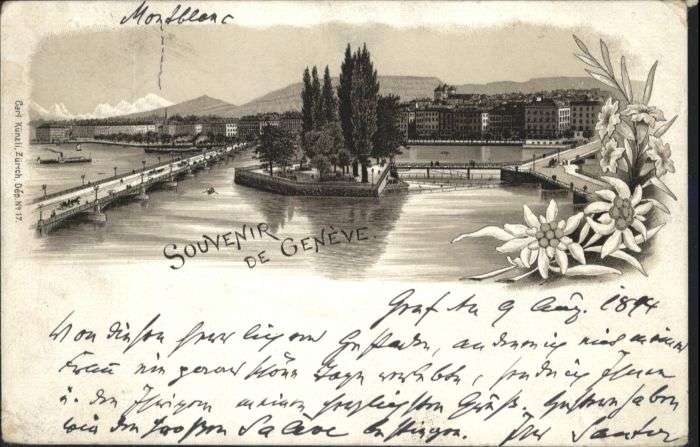 Montblanc
Carl Künzli, Zürich, Dép. No 17.
SOUVENIR
DE GENÈVE.
Genf den 9 Aug. 1894
Von diesen herrlichen Gestaden, an denen ich mit meiner
Frau ein paar schöne Tage verlebte, sende ich Ihnen
u. den Ihrigen meinen herzlichsten Gruß. Gestern haben
wir den großen Salève bestiegen. Ihr